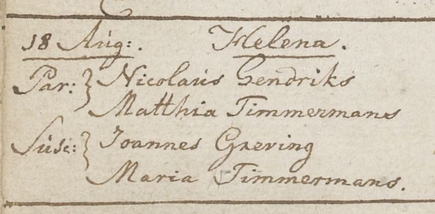 18 Aug:. Helena.
Par: } Nicolaus Hendriks
Matthia Timmermans
Susc: } Joannes Grering
Maria Timmermans.